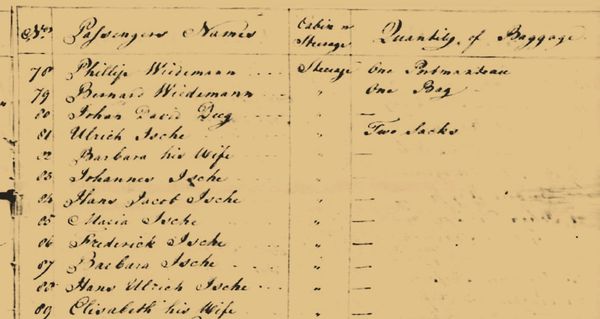 Nos Passengers Names Cabin or Steerage Quantity of Baggage
78 Phillip Wiedemann Steerage One Portmanteau
79 Bernard Wiedemann " One Bag
80 Johan David Dieg " —
81 Ulrich Ische " Two Sacks
82 Barbara his Wife " —
83 Johannes Ische " —
84 Hans Jacob Ische " —
85 Maria Ische " —
86 Frederick Ische " —
87 Barbara Ische " —
88 Hans Ulrich Ische " —
89 Elisabeth his Wife " —